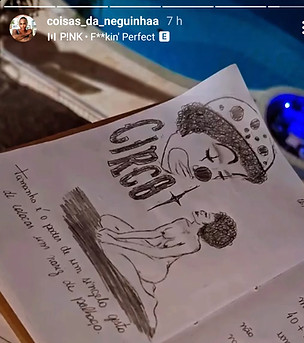 coisas_da_neguinhaa 7 h
P!NK • F**kin' Perfect E
CIRCO
Tamanho é o poder de um simples gesto
de colocar um nariz de palhaço.
não
40 x